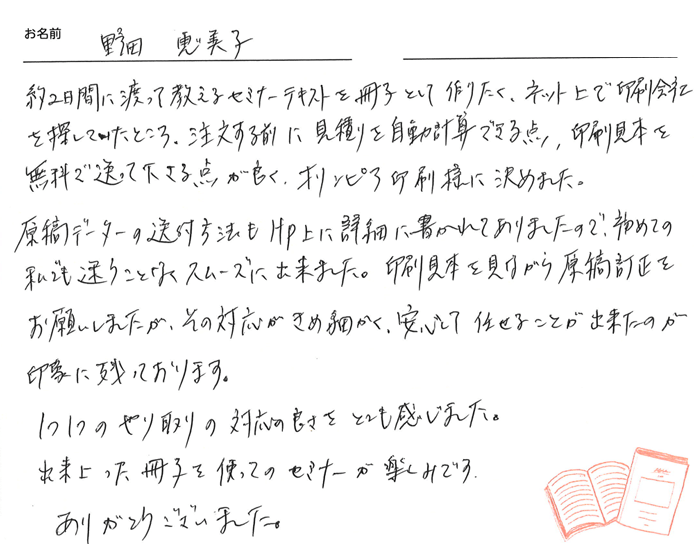 お名前 野田 恵美子
約2日間に渡って教えるセミナーテキストを冊子として作りたく、ネット上で印刷会社
を探していたところ、注文する前に見積りを自動計算できる点、印刷見本を
無料で送って下さる点が良く、オリンピア印刷様に決めました。
原稿データーの送付方法もHp上に詳細に書かれてありましたので、初めての
私でも迷うことなくスムーズに出来ました。印刷見本を見ながら原稿訂正を
お願いしましたが、その対応がきめ細かく、安心して任せることが出来たのが
印象に残っております。
1つ1つのやり取りの対応の良さをとても感じました。
出来上った冊子を使ってのセミナーが楽しみです。
ありがとうございました。